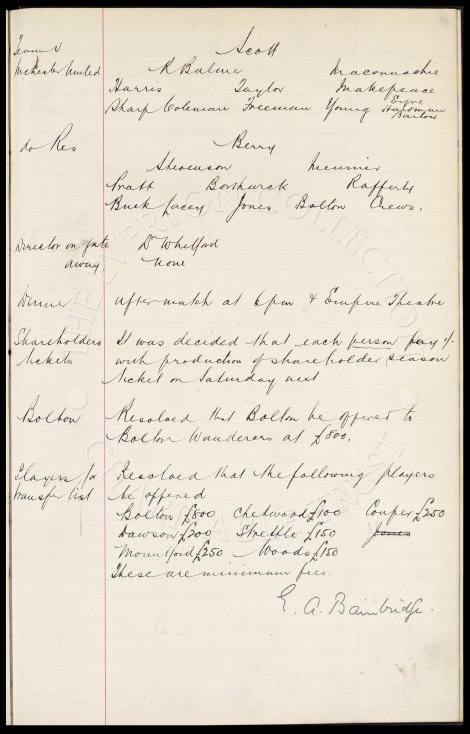 Team v Scott
Mchester United R Balmer Maconnachie
Harris Taylor Makepeace
Sharp Coleman Freeman Young Hardman
Barlow
do Res Berry
Stevenson Meunier
Pratt Borthwick Rafferty
Buck Lacey Jones Bolton Crews.
Director on gate Dr Whitford
away None
Dinner after match at 6pm & Empire Theatre
Shareholders It was decided that each person pay
Tickets with production of shareholder season
ticket on Saturday next
Bolton Resolved that Bolton be offered to
Bolton Wanderers at £800.
Players for Resolved that the following players
transfer list be offered
Bolton £800 Chetwood £100 Couper £250
Dawson £200 Strettle £150 Jones
Mountford £250 Woods £150
These are minimum fees.
E. A. Bainbridge.
THE EVERTON COLLECTION